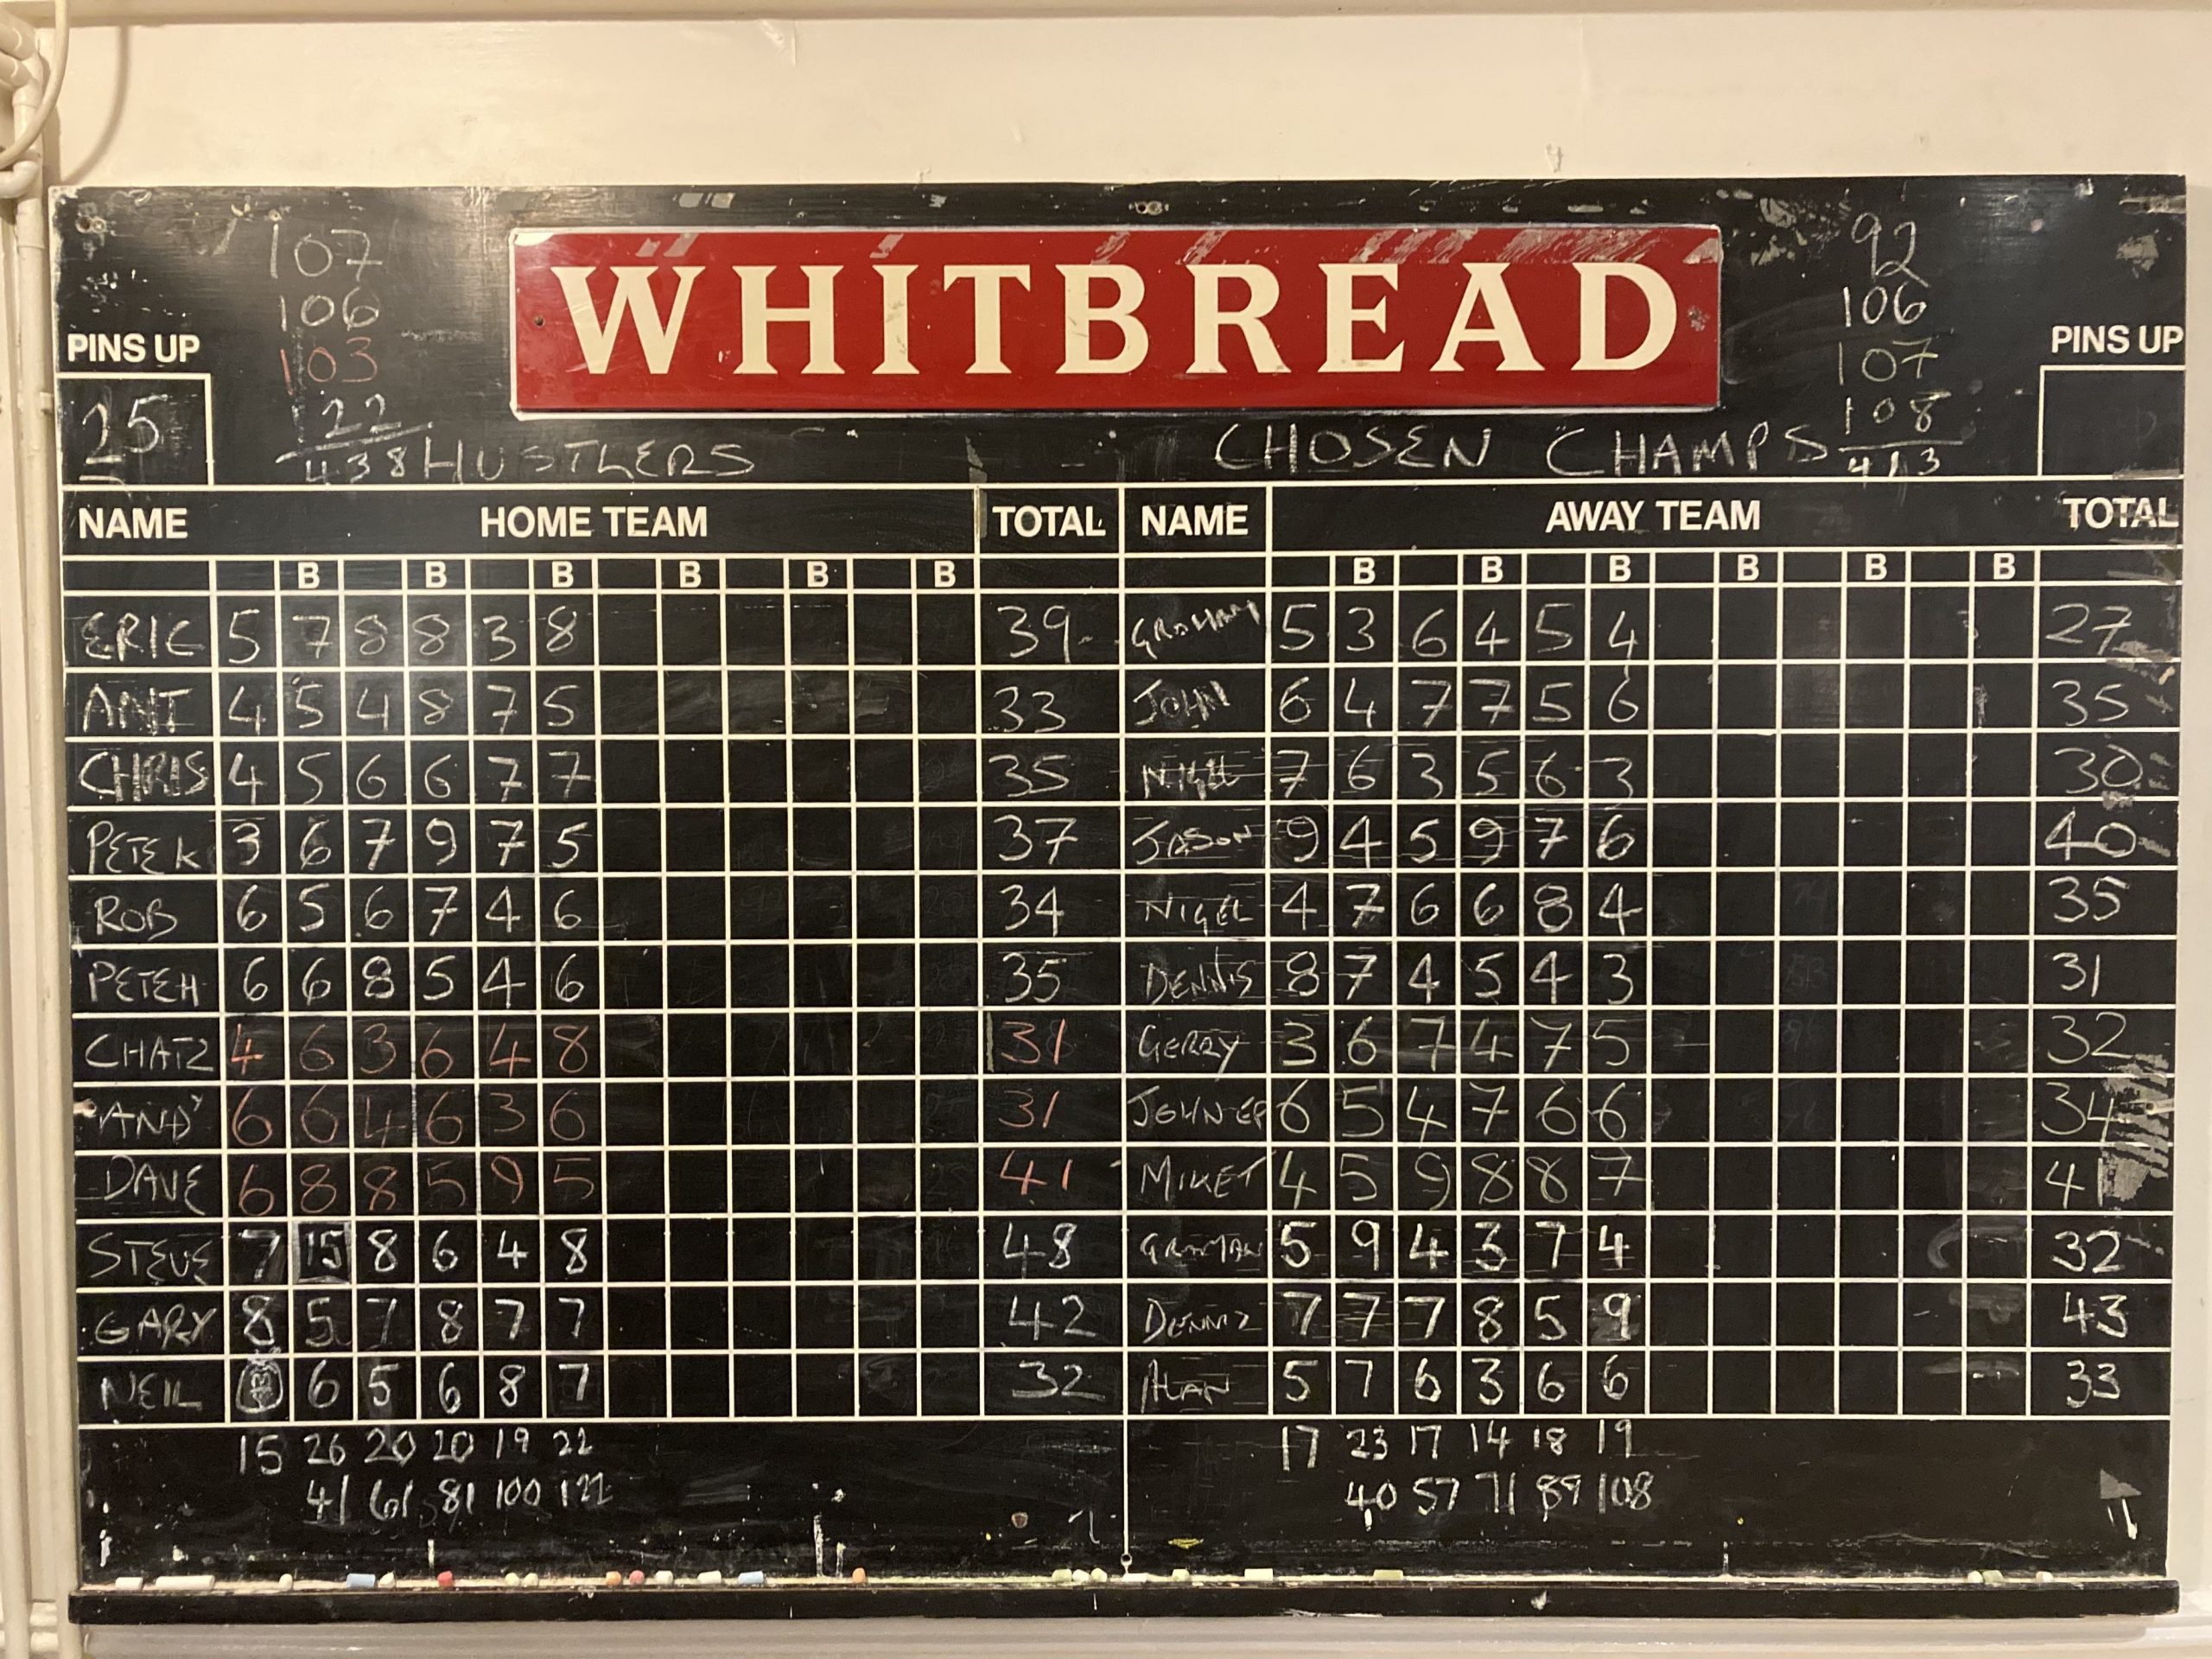 WHITBREAD
107
106
103
22
438
92
106
107
108
413
PINS UP
PINS UP
25
HUSTLERS
CHOSEN CHAMPS
NAME HOME TEAM TOTAL NAME AWAY TEAM TOTAL
B B B B B B B B B B B B
ERIC 5 7 8 8 3 8 39 GRAHAM 5 3 6 4 5 4 27
ANT 4 5 4 8 7 5 33 JOHN 6 4 7 7 5 6 35
CHRIS 4 5 6 6 7 7 35 NIGEL 7 6 3 5 6 3 30
PETE K 3 6 7 9 7 5 37 JASON 9 4 5 9 7 6 40
ROB 6 5 6 7 4 6 34 NIGEL 4 7 6 6 8 4 35
PETE H 6 6 8 5 4 6 35 DENNIS 8 7 4 5 4 3 31
CHATZ 4 6 3 6 4 8 31 GERRY 3 6 7 4 7 5 32
ANDY 6 6 4 6 3 6 31 6 5 4 7 6 6 34
DAVE 6 8 8 5 9 5 41 MIKE T 4 5 9 8 8 7 41
STEVE 7 15 8 6 4 8 48 5 9 4 3 7 4 32
GARY 8 5 7 8 7 7 42 7 7 7 8 5 9 43
NEIL 6 5 6 8 7 32 ALAN 5 7 6 3 6 6 33
15 26 20 20 19 22 17 23 17 14 18 19
41 61 81 100 122 40 57 71 89 108